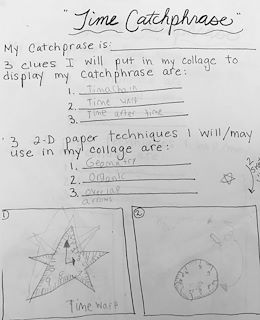 "Time Catchphrase"
My Catchprase is:
3 clues I will put in my collage to
display my catchphrase are:
1. Timechain
2. Time warp
3. Time after time
3 2-D paper techniques I will/may
use in my collage are:
1. Geometry
2. Organic
3. overlap
arrows
1
Time warp
2